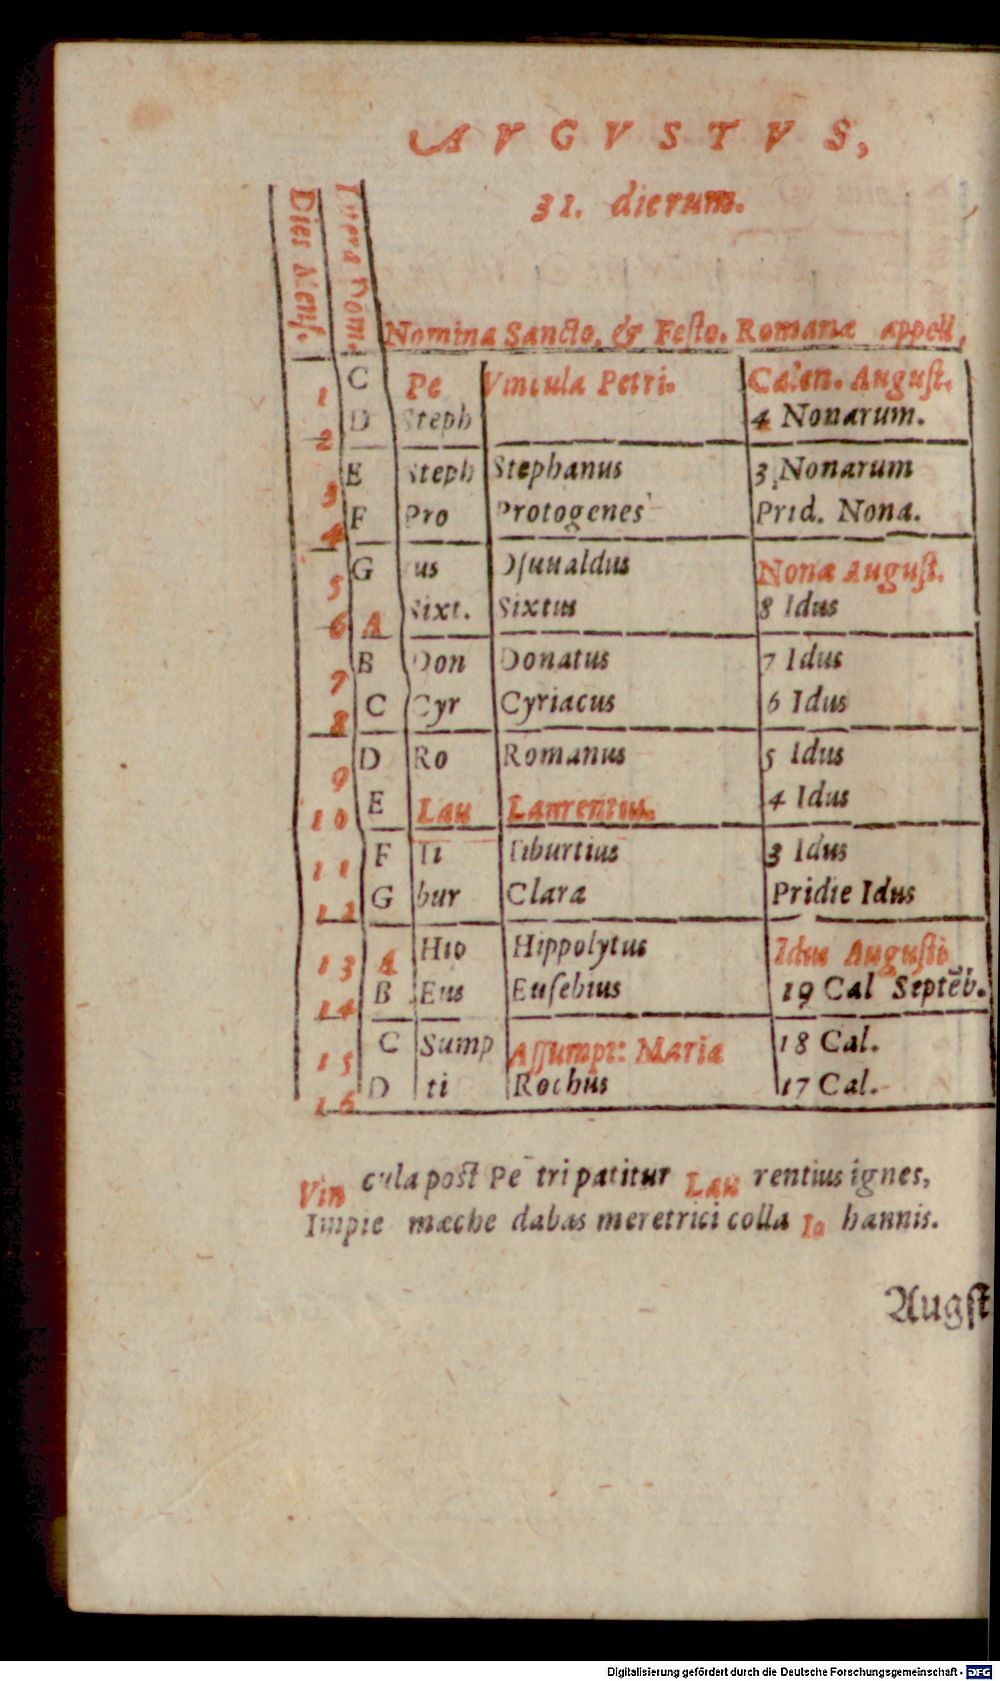 AVGVSTVS,
31. dierum.
Dies Mens.
Litera Dom.
Nomina Sancto. & Festo. Romanæ appell,
1 C Pe Vincula Petri. Calen. August.
2 D Steph 4 Nonarum.
3 E Steph Stephanus 3 Nonarum
4 F Pro Protogenes Prid. Nona.
5 G us Osuualdus Nonæ August.
6 A Sixt. Sixtus 8 Idus
7 B Don Donatus 7 Idus
8 C Cyr Cyriacus 6 Idus
9 D Ro Romanus 5 Idus
10 E Lau Laurentius. 4 Idus
11 F Ti Tiburtius 3 Idus
12 G bur Clara Pridie Idus
13 A Hip Hippolytus Idus Augusti
14 B Eus Eusebius 19 Cal Septēb.
15 C Sump Assumpt: Mariæ 18 Cal.
16 D ti Rochus 17 Cal.
Vin cula post Pe tri patitur Lau rentius ignes,
Impie mæche dabas meretrici colla Io hannis.
Augst
Digitalisierung gefördert durch die Deutsche Forschungsgemeinschaft - DFG